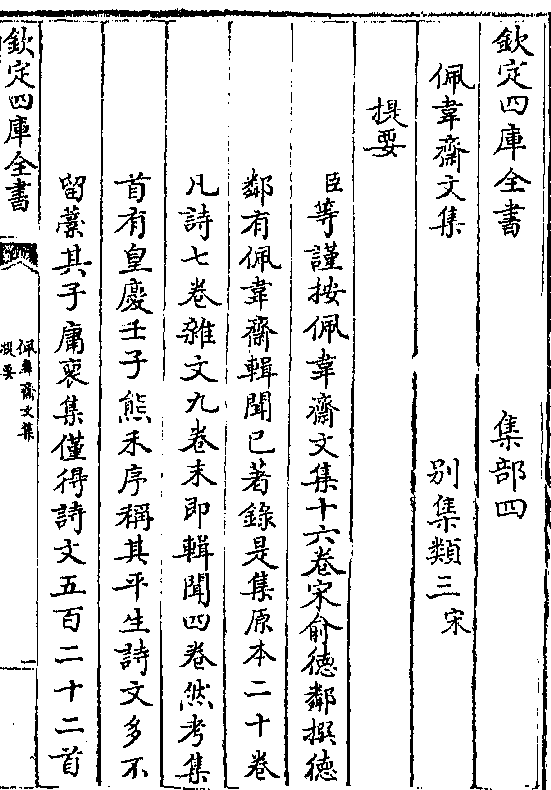 欽定四庫全書　　　集部四
佩韋齋文集　　　別集類三宋
提要
臣等謹按佩韋齋文集十六卷宋俞德鄰撰德
鄰有佩韋齋輯聞已著錄是集原本二十卷
凡詩七卷雜文九卷末即輯聞四卷然考集
首有皇慶壬子熊禾序稱其平生詩文多不
留藳其子庸裒集僅得詩文五百二十二首
欽定四庫全書　佩韋齋文集　提要　一